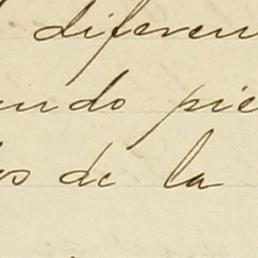 diferen
ndo pie
os de la